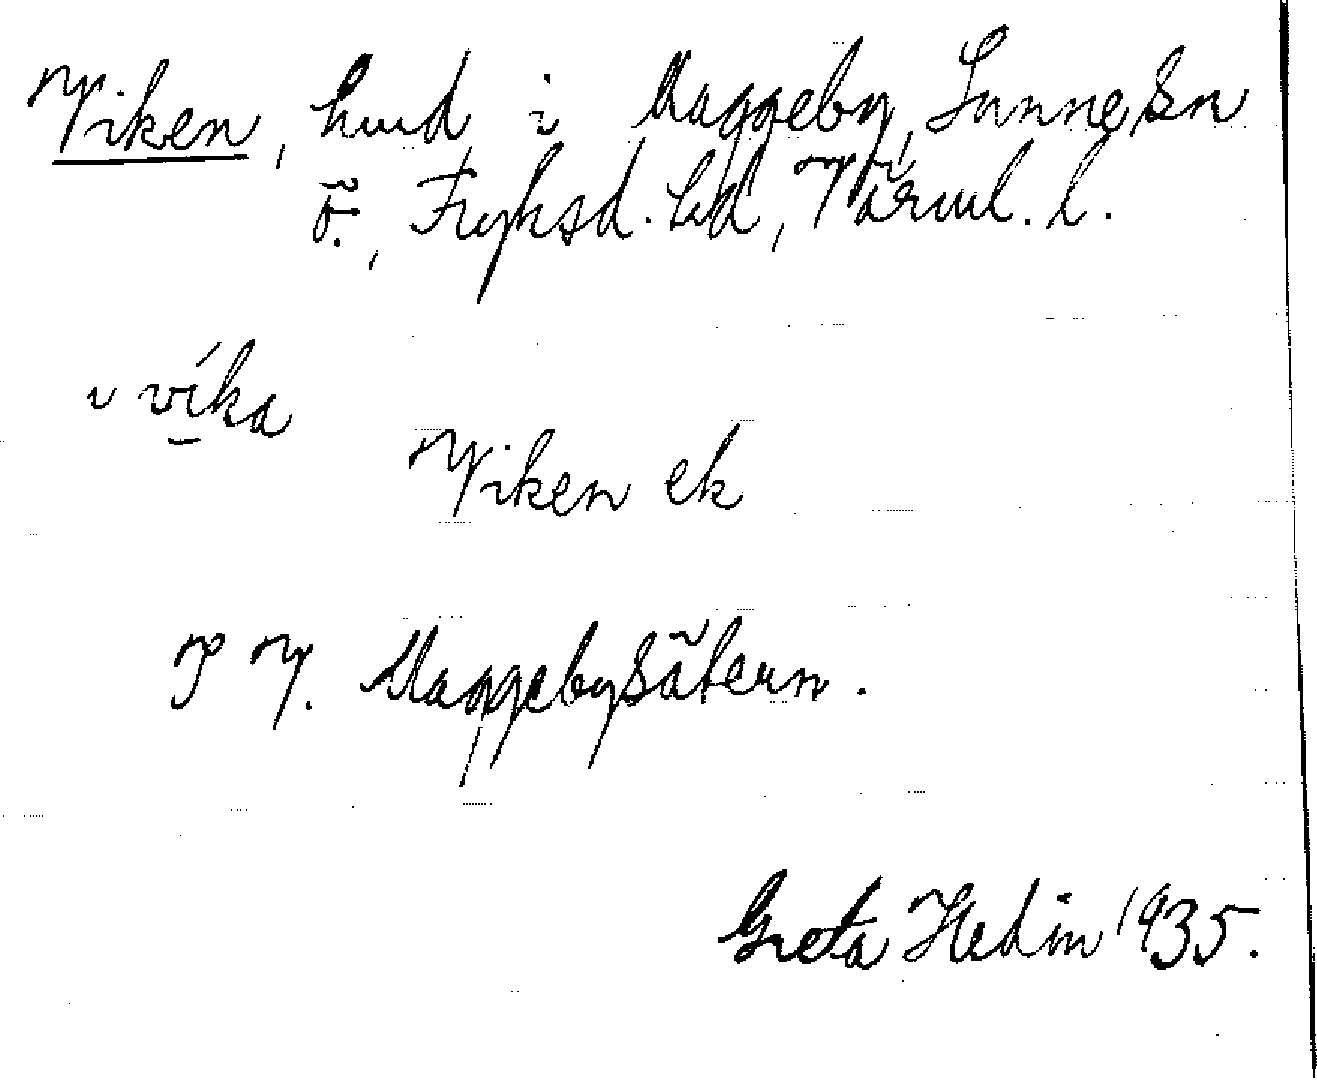 Viken, hmd i Maggeby, Sunne Sn
ö., Fryksd. hd, Värml. l.
i víka
Viken ek
P V. Maggebysätern.
Greta Hedin 1935.